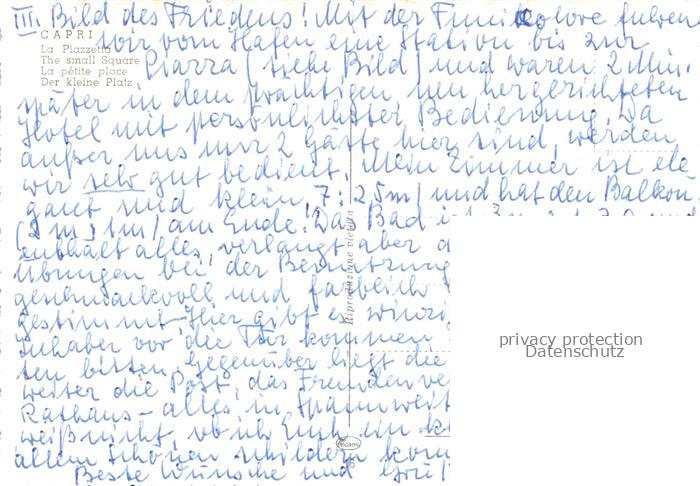 III. Bild des Friedens! Mit der Funikolore fuhren
CAPRI
La Piazzetta
The small Square
La pétite place
Der kleine Platz
wir vom Hafen eine Station bis zur
Piazza (siehe Bild) und waren 2 Min.
später in dem prächtigen neu hergerichteten
Hotel mit persönlichster Bedienung. Da
außer uns nur 2 Gäste hier sind, werden
wir sehr gut bedient. Mein Zimmer ist ele
gant und klein, 7:2,5m/ und hat den Balkon
(2m, 1m/ am Ende! Das Bad ist
enthält alles, verlangt aber
Übungen bei der Benutzung
geschmackvoll und farblich
gestimmt. Hier gibt es winzi
Inhaber vor die Tür kommen
ten bitten. Gegenüber liegt die
weiter die Post, das Fremdenve
Rathaus - alles in Spannweit
weiß nicht, ob ich Euch ein kl
allem Schönen schildern kon
Beste Wünsche und Grüß
Riproduzione vietata
privacy protection
Datenschutz